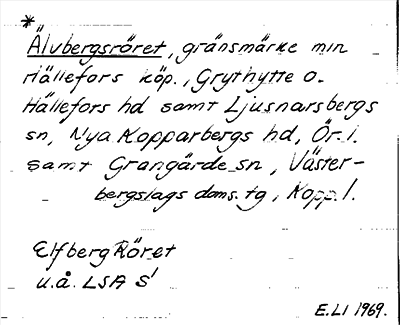 *
Älvbergsröret, gränsmärke mln
Hällefors köp., Grythytte o.
Hällefors hd samt Ljusnarsbergs
sn, Nya Kopparbergs hd, Ör. l.
samt Grangärde sn, Väster-
bergslags doms. tg, Kopp. l.
Elfberg Röret
u.å. LSA S1
E.LI 1969.